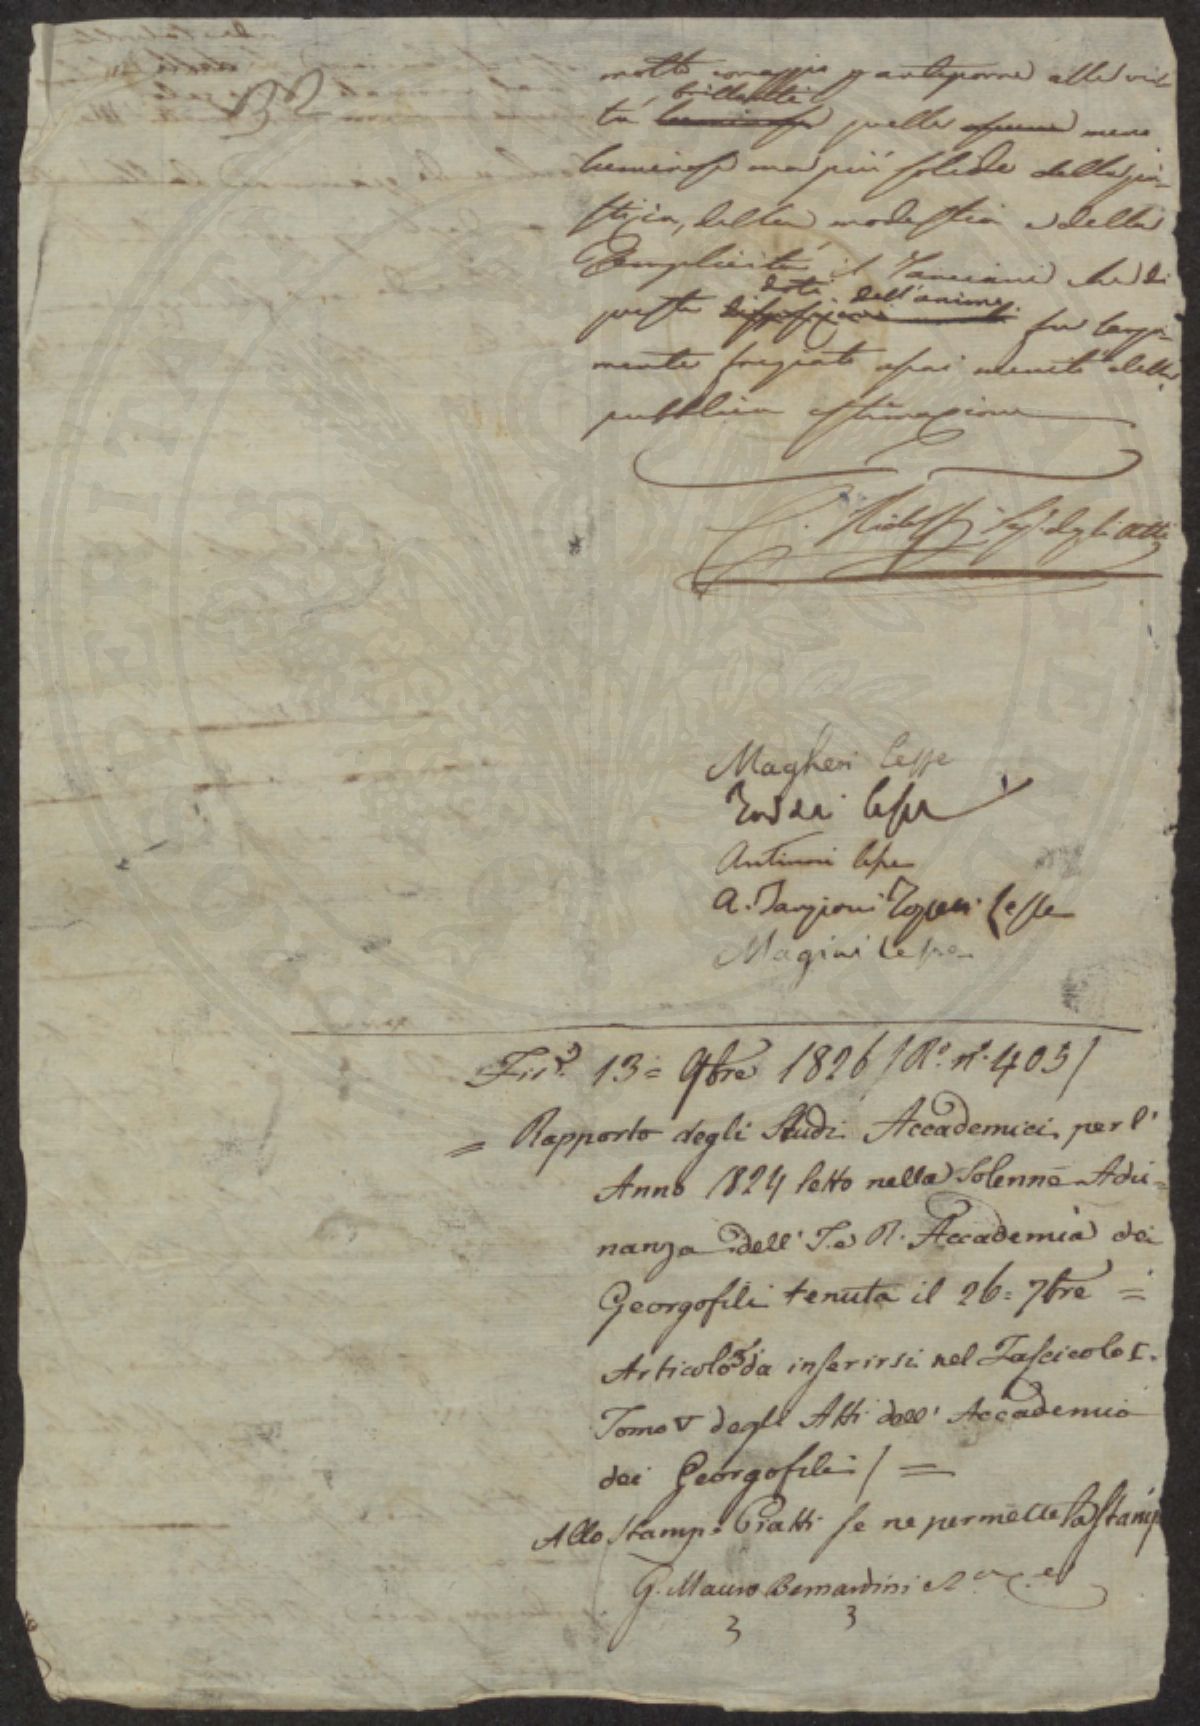 molto coraggio p anteporre alle vir-
tù brillanti quelle meno
luminose ma più solide della giu-
stizia, della modestia e della
semplicità il Lanciani che di
queste doti dell'animo fu larga-
mente fregiato assai meritò della
pubblica estimazione
C. Ridolfi Seg. degli Atti
Magheri lesse
Taddei lesse
Antinori lesse
A. Targioni Tozzetti lesse
Magini lesse
Fir. 13 = 9bre 1826 / R.o n.o 405 /
= Rapporto degli Studi Accademici per l'
Anno 1824 letto nella Solenne Adu=
nanza dell' I. e R. Accademia dei
Georgofili tenuta il 26 = 7bre =
Articolo 3° da inserirsi nel Fascicolo I.
Tomo V degli Atti dell' Accademia
dei Georgofili / =
Allo Stamp.e Piatti se ne permette la Stamp
G. Mauro Bernardini
3 3